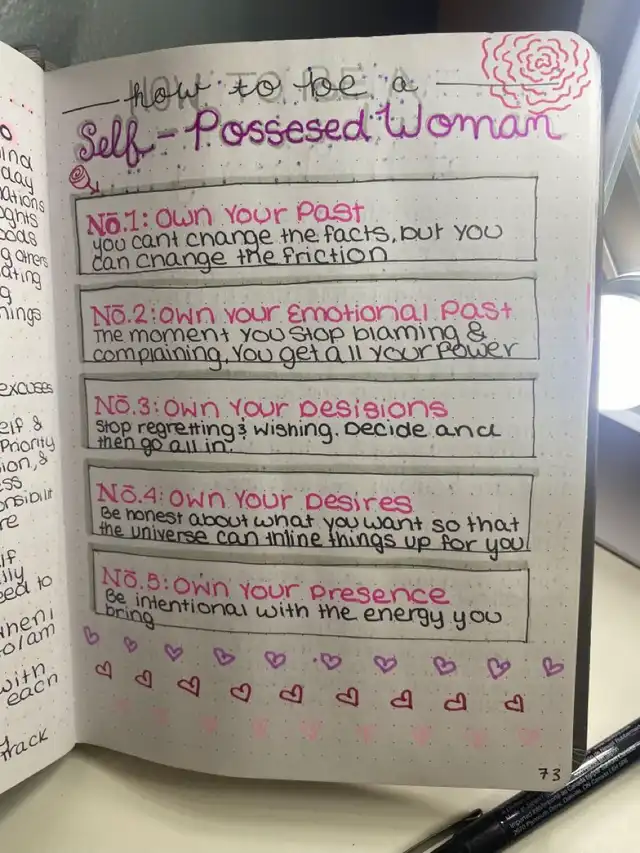 ind
day
ations
ughts
g others
ating
g
hings
excuses
elf &
Priority
ion, &
ss
onsibilit
re
lf
eed to
when i
with
each
track
how to be a
HOW TO BE A
Self-Possesed Woman
No.1: Own Your Past
you cant change the facts, but you
can change the friction
No.2: Own your Emotional Past
The moment you stop blaming &
complaining, you get all your power
No.3: Own Your Desisions
Stop regretting & wishing. Decide and
then go all in.
No.4: Own Your Desires
Be honest about what you want so that
the universe can inline things up for you
No.5: Own Your Presence
Be intentional with the energy you
bring
73